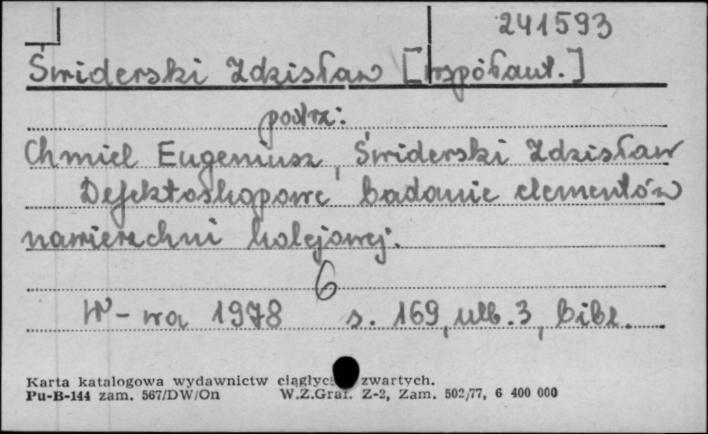 241593
Świderski Zdzisław [współaut.]
patrz:
Chmiel Eugeniusz, Świderski Zdzisław
Defektoskopowe badanie elementów
nawierzchni kolejowej.
6
W-wa 1978 s. 169, nlb. 3, bibl.
Karta katalogowa wydawnictw ciągłyc zwartych.
Pu-B-144 zam. 567/DW/On W.Z.Graf. Z-2, Zam. 502/77, 6 400 000